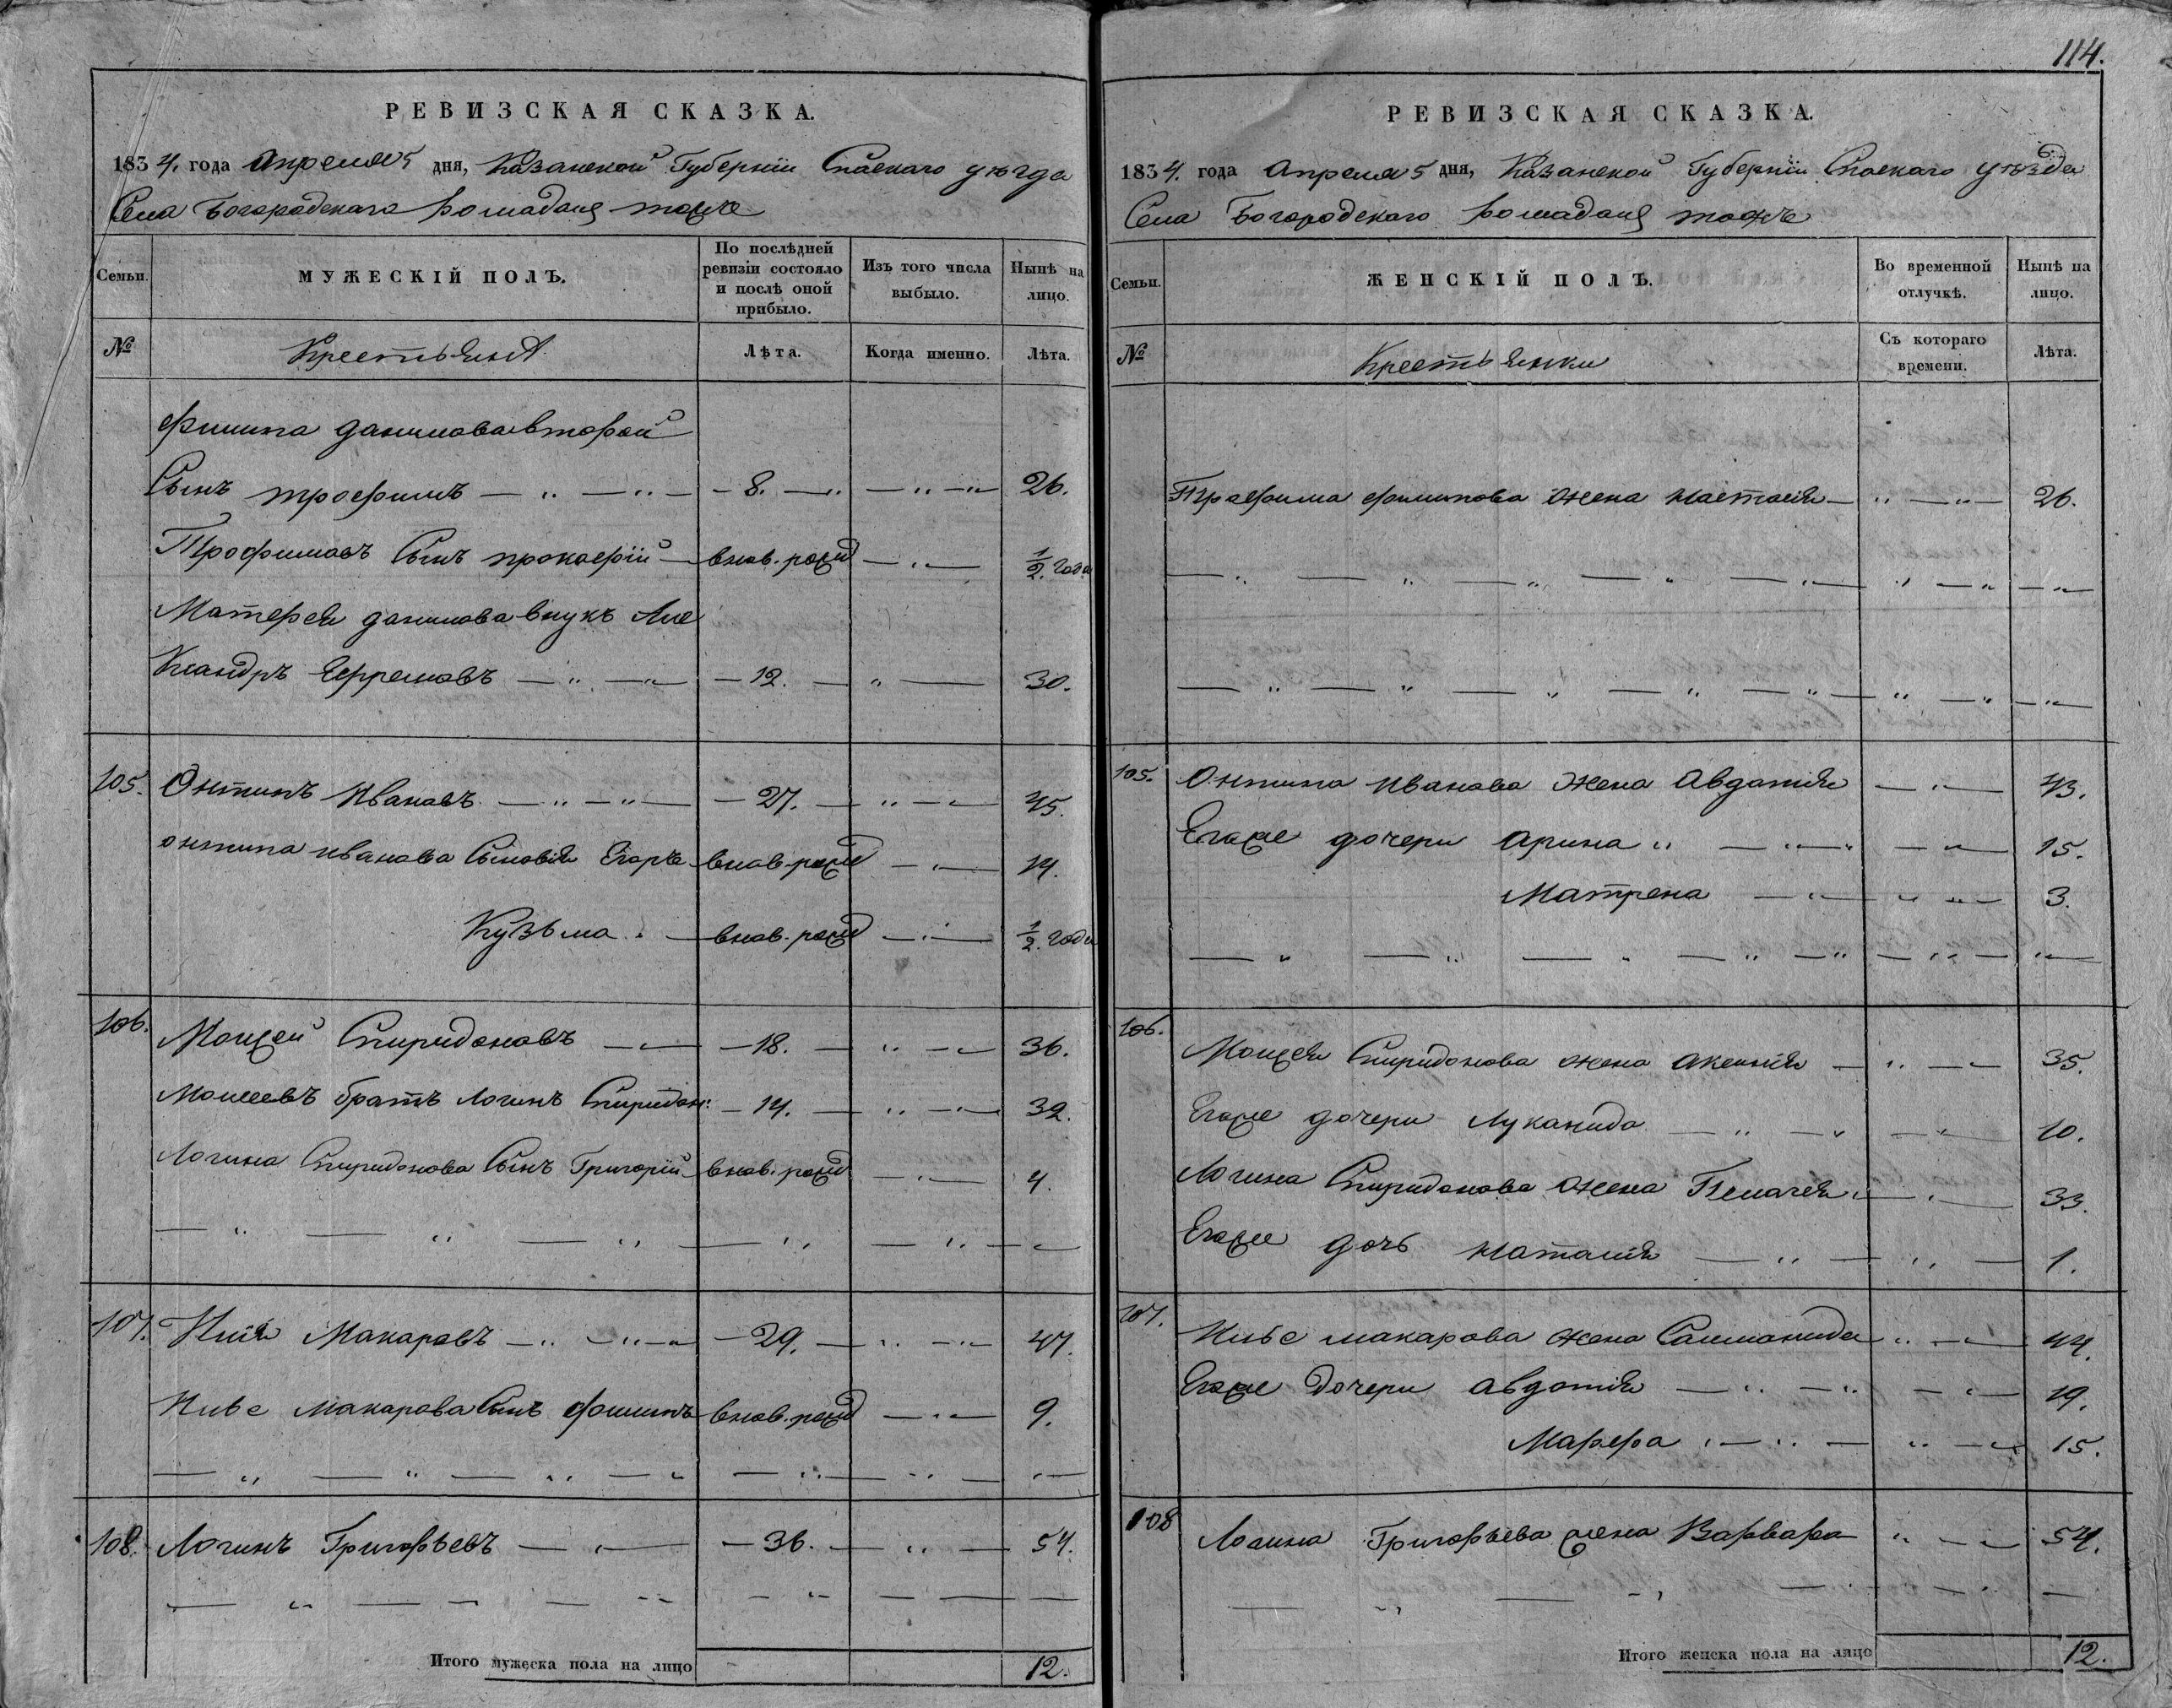 РЕВИЗСКАЯ СКАЗКА.
1834. года Апреля 5 дня, Казанской Губернiи Спаскаго уѣзда
Села Богородскаго тожъ
Семьи.
МУЖЕСКІЙ ПОЛЪ.
По послѣдней ревизіи состояло и послѣ оной прибыло.
Изъ того числа выбыло.
Нынѣ на лицо.
№
Крестьянъ
Лѣта.
Когда именно.
Лѣта.
Филипа данилова второй
Сынъ трофимъ — 8. — 26.
Трофимавъ Сынъ прокофiй — внов. рожд — 1/2. года
Матфея данилова внукъ Але
Ксандръ Ефремовъ — 12. — 30.
105. Онтипъ Ивановъ — 27. — 45.
онтипа иванова Сыновiя Егоръ — внов. рожд — 14.
Кузьма — внов. рожд — 1/2. года
106. Моисей Спиридоновъ — 18. — 36.
Моисеевъ братъ Логинъ Спиридон: — 14. — 32.
Логина Спиридонова Сынъ Григорiй — внов. рожд — 4.
107. Илiя Макаровъ — 29. — 47.
Ильѣ Макарова Сынъ филипъ — внов. рожд — 9.
108. Логинъ Григорьевъ — 36. — 54.
Итого мужеска пола на лицо 12.
114.
РЕВИЗСКАЯ СКАЗКА.
1834. года Апреля 5 дня, Казанской Губернiи Спаскаго уѣзда
Села Богородскаго тожъ
Семьи.
ЖЕНСКІЙ ПОЛЪ.
Во временной отлучкѣ.
Нынѣ на лицо.
№
Крестьянки
Съ котораго времени.
Лѣта.
Трофима филипова жена настасiя — 26.
105. Онтипа иванова жена Авдатiя — 43.
Егоже дочери Арина — 15.
Матрена — 3.
106. Моисея Спиридонова жена Аксинiя — 35.
Егоже дочери Луканида — 10.
Логина Спиридонова жена Пелагея — 33.
Егоже дочь наталiя — 1.
107. Ильѣ макарова жена Саломанида — 44.
Егоже дочери авдотiя — 19.
Марфа — 15.
108 Логина Григорьева жена Варвара — 54.
Итого женска пола на лицо 12.